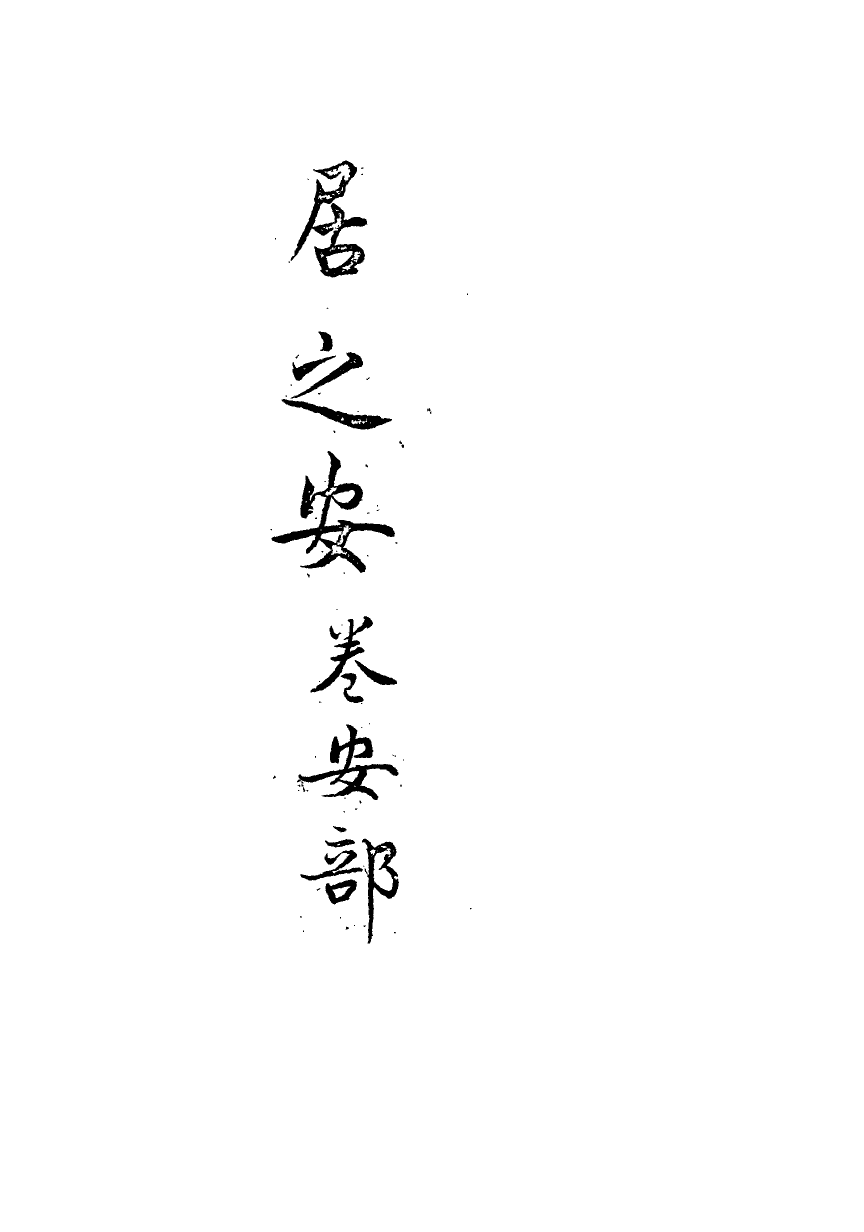 居之安卷安部